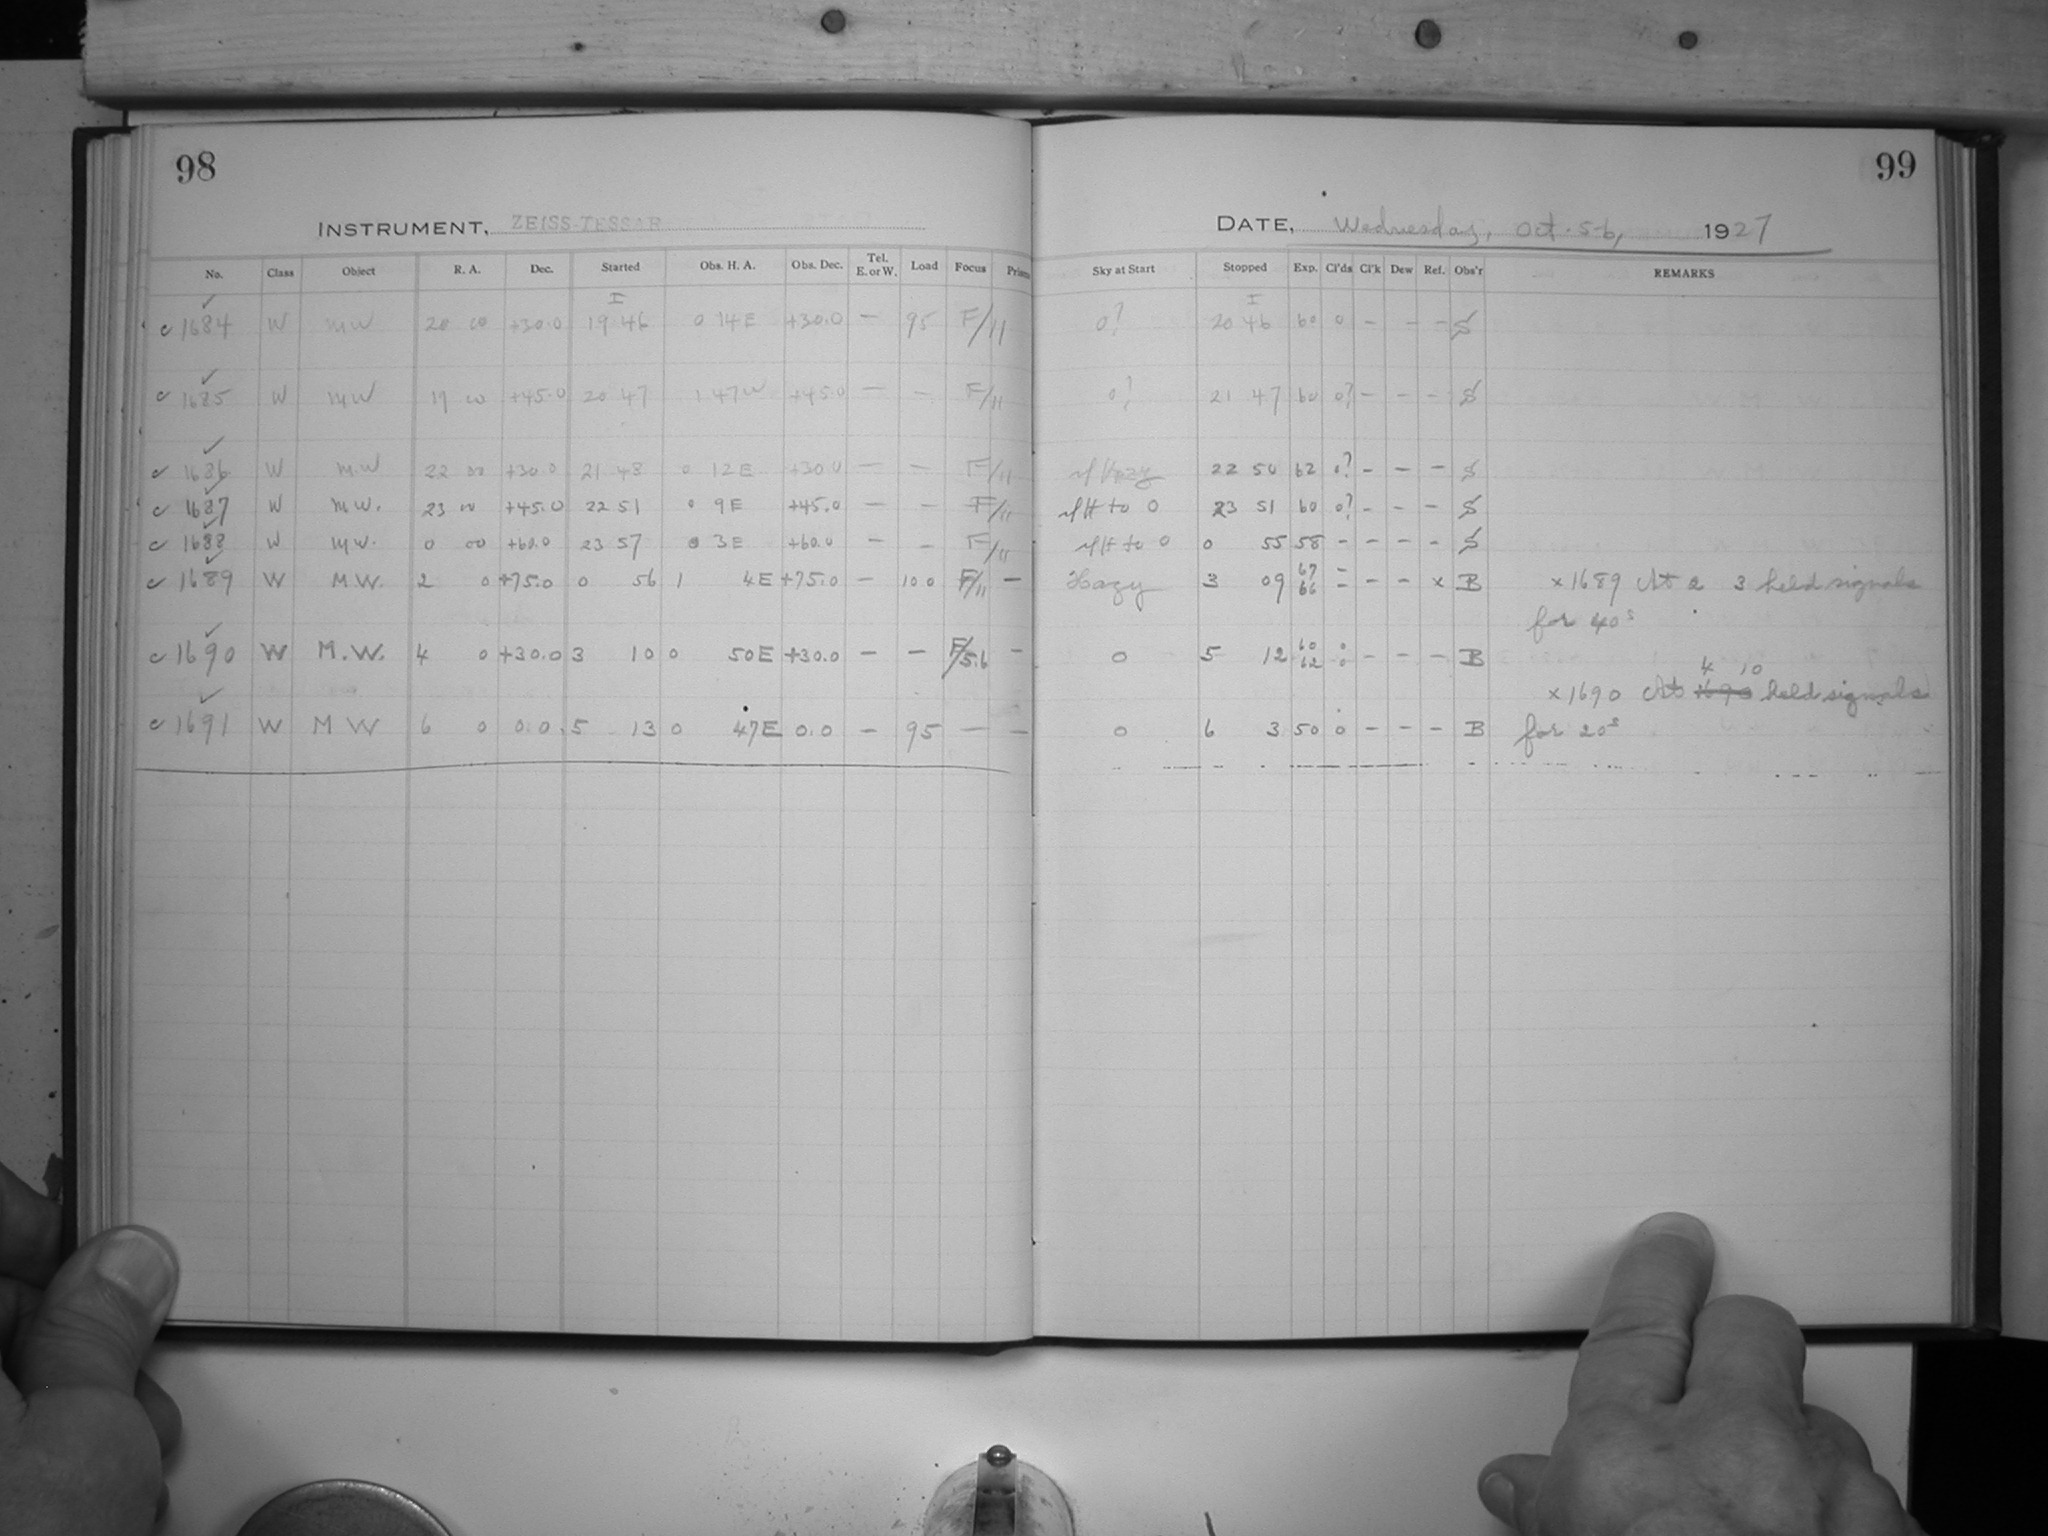 98
INSTRUMENT, ZEISS-TESSAR
No. Class Object R. A. Dec. Started Obs. H. A. Obs. Dec. Tel. E. or W. Load Focus Prism
I
c 1684 W MW 20 00 +30.0 19 46 0 14E +30.0 — 95 F/11
c 1685 W MW 19 00 +45.0 20 47 1 47W +45.0 — — F/11
c 1686 W M.W 22 00 +30.0 21 48 0 12E +30.0 — — F/11
c 1687 W M.W. 23 00 +45.0 22 51 0 9E +45.0 — — F/11
c 1688 W M.W. 0 00 +60.0 23 57 0 3E +60.0 — — F/11
c 1689 W M.W. 2 0 +75.0 0 56 1 4E +75.0 — 10.0 F/11 —
c 1690 W M.W. 4 0 +30.0 3 10 0 50E +30.0 — — F/5.6 —
c 1691 W MW 6 0 0.0 5 13 0 47E 0.0 — 95 — —
99
DATE, Wednesday, Oct. 5-6, 1927
Sky at Start Stopped Exp. Cl'ds Cl'k Dew Ref. Obs'r REMARKS
I
0? 20 46 60 0 — — — S
0? 21 47 60 0? — — — S
Hazy 22 50 62 0? — — — S
to 0 23 51 60 0? — — — S
to 0 0 55 58 — — — — S
Hazy 3 09 67 66 — — — — x B x1689 At 2 3 held signals
for 40s
0 5 12 60 62 0 0 — — — B
4 10
x1690 At 1690 held signals
0 6 3 50 0 — — — B for 20s